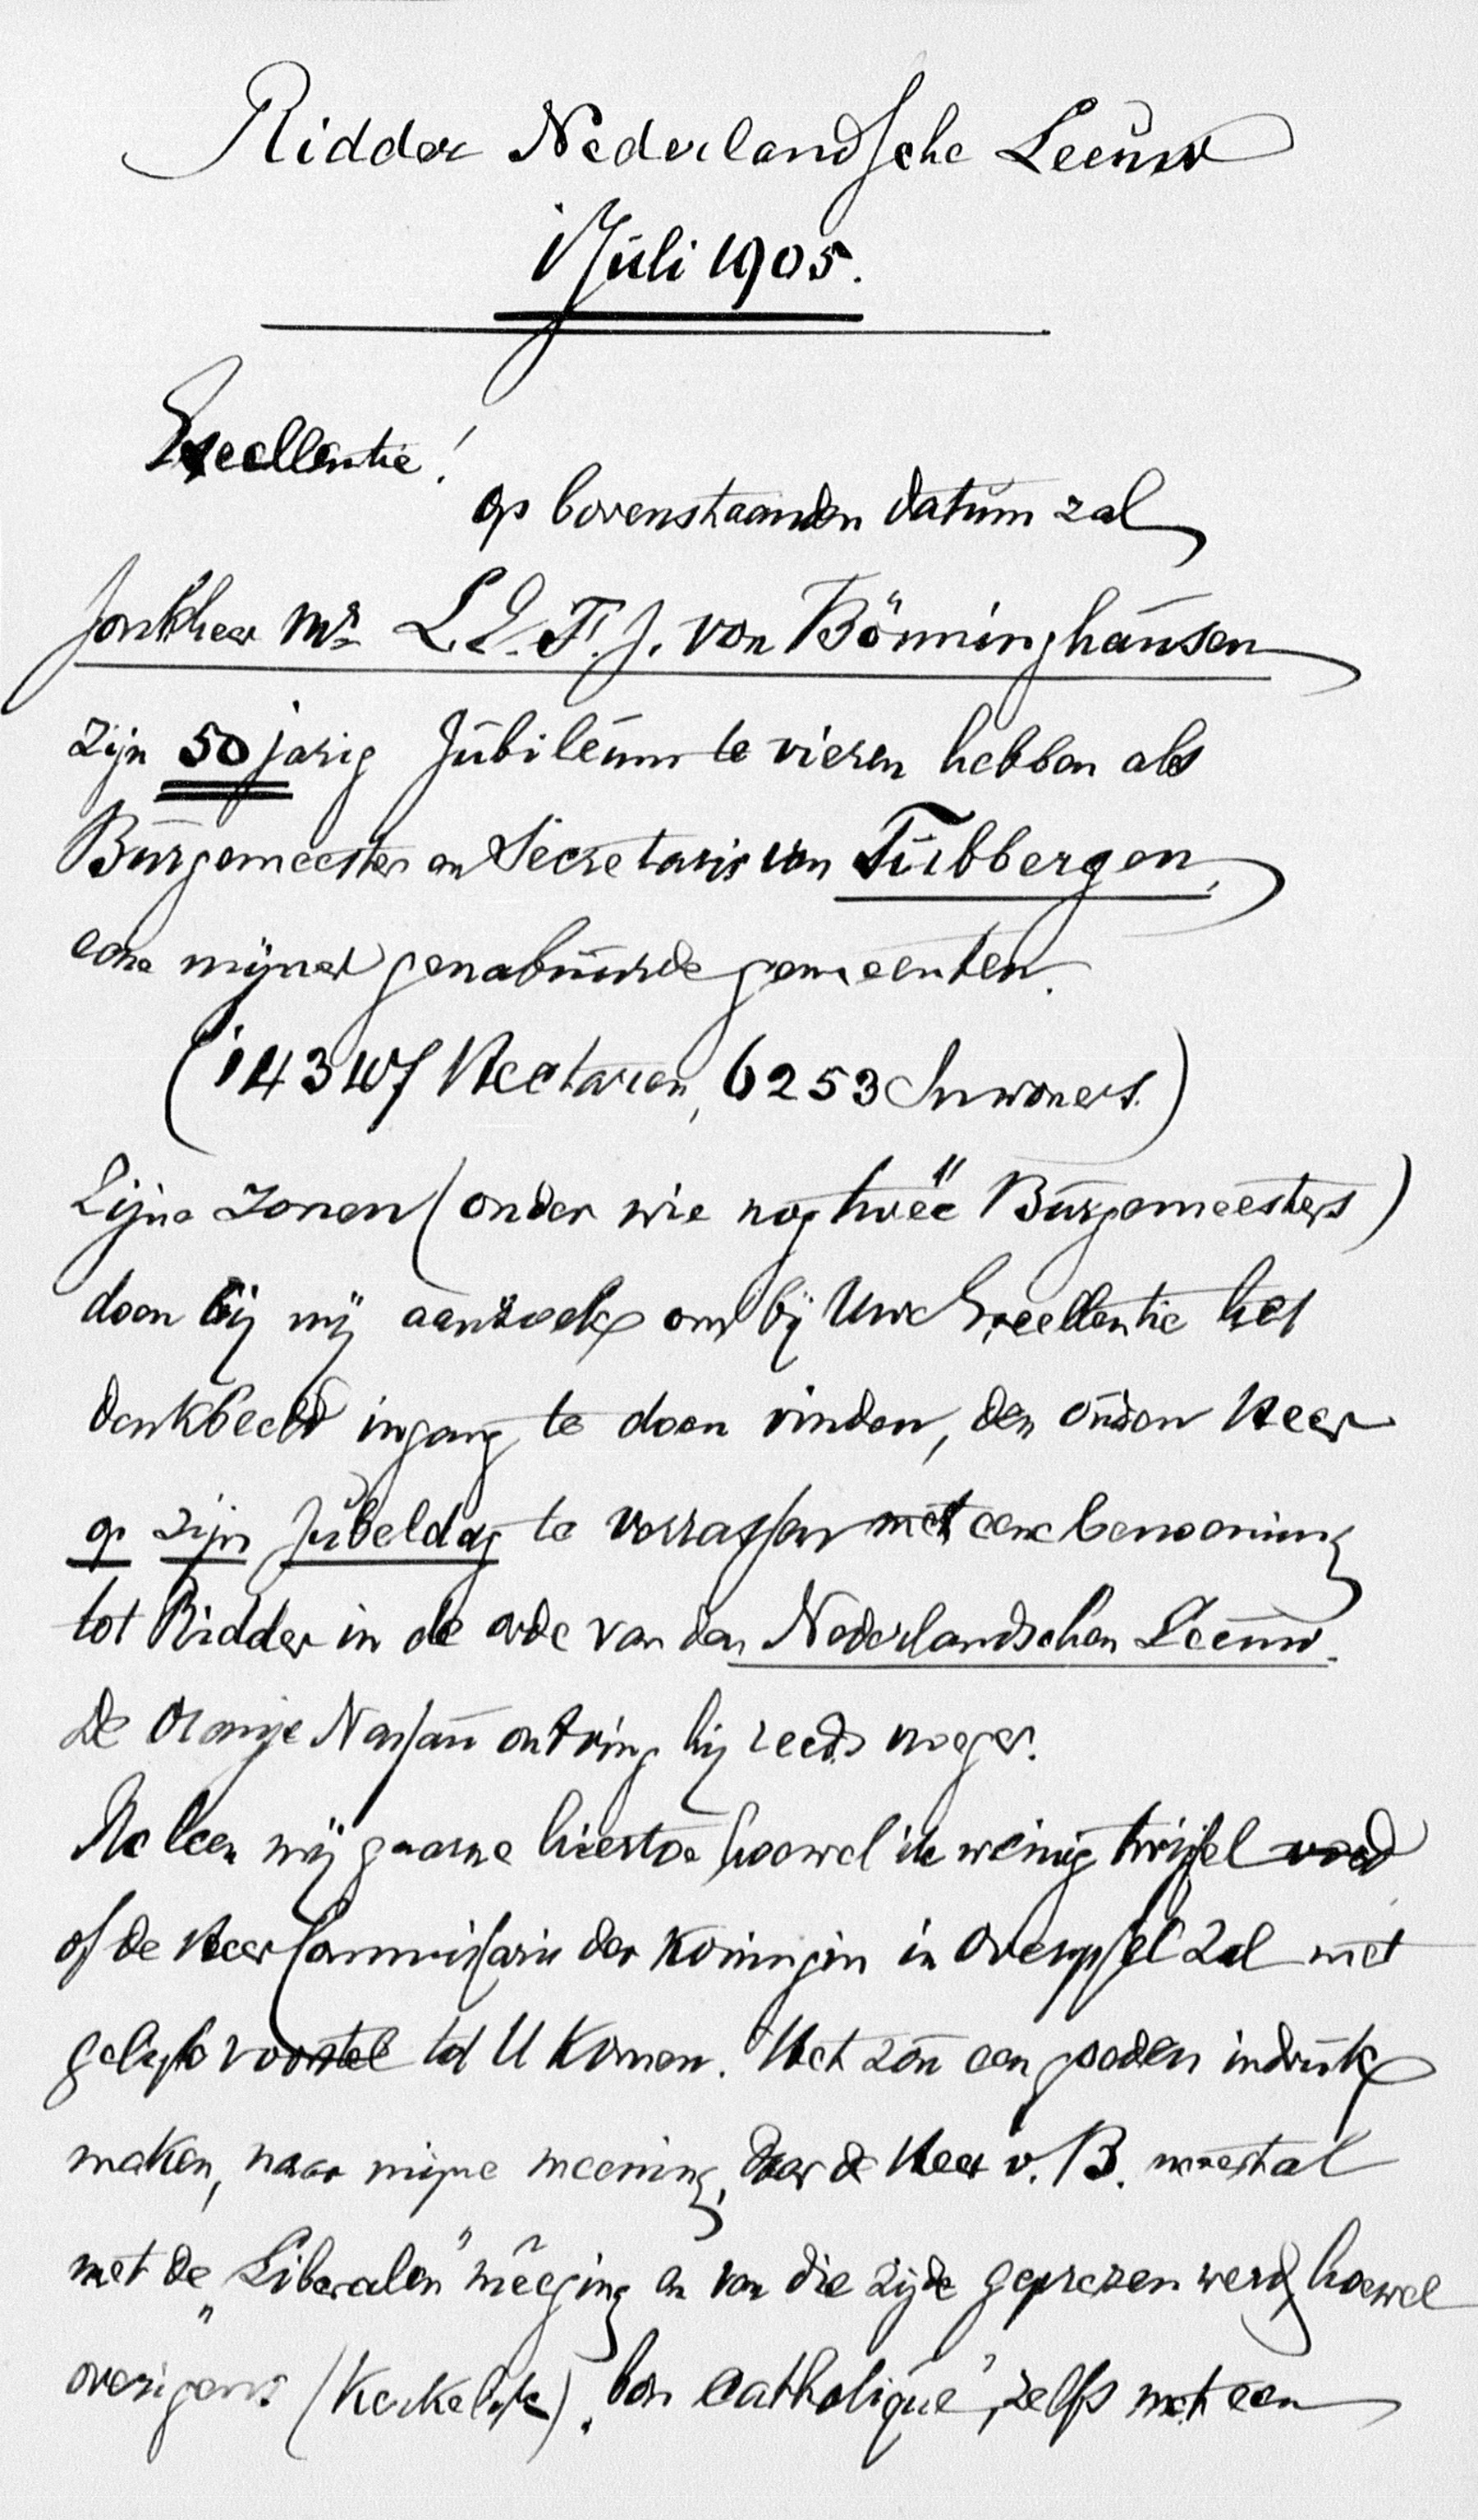 Ridder Nederlandsche Leeuw
1 Juli 1905.
Excellentie!
op bovenstaanden datum zal
Jonkheer Mr L.E.F.J. von Bönninghausen
zijn 50 jarig Jubileum te vieren hebben als
Burgemeester en Secretaris van Tubbergen,
eene mijner genabuurde gemeenten.
(14347 Hectaren, 6253 Inwoners.)
Zijne zonen (onder wie nog tweë Burgemeesters)
doen bij mij aanzoek om bij Uwe Excellentie het
denkbeeld ingang te doen vinden, den ouden Heer
op zijn Jubeldag te verrassen met eene benoeming
tot Ridder in de orde van den Nederlandschen Leeuw.
De Oranje Nassau ontving hij reeds vroeger.
Ik leen mij gaarne hiertoe hoewel ik weinig twijfel voed
of de Heer Commissaris der Koningin in Overijssel zal met
gelijk voorstel tot U komen. Het zou een goeden indruk
maken, naar mijne meening, daar de Heer v. B. meestal
met de „Liberalen" mêeging en van die zijde geprezen werd, hoewel
overigens (Kerkelijk) „bon catholique", zelfs met een